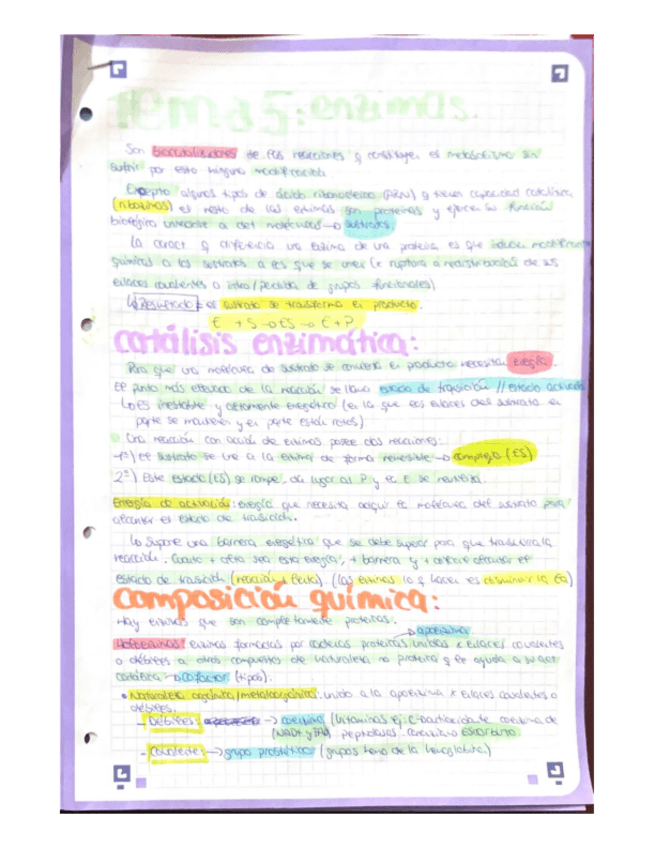 Tema 5: enzimas.
Son biocatalizadores de las reacciones q constituyen el metabolismo sin
sufrir por esto ninguna modificación.
Excepto algunos tipos de ácido ribonucleico (ARN) q tienen capacidad catalítica
(ribozimas) el resto de las enzimas son proteínas y ejercen su función
biológica uniéndose a det moléculas → sustratos
La caract q diferencia una enzima de una proteína es que inducen modificaciones
químicas a los sustratos a los que se unen (x ruptura o redistribución de sus
enlaces covalentes o intro/pérdida de grupos funcionales)
↳ Resultado: el sustrato se transforma en producto.
E + S → ES → E + P
catálisis enzimática:
Para que una molécula de sustrato se convierta en producto necesita energía.
El punto más elevado de la reacción se llama estado de transición // estado activado
↳ es inestable y altamente energético (en la que los enlaces del sustrato en
parte se mantienen y en parte están rotos)
Una reacción con acción de enzimas posee dos reacciones:
1ª) el sustrato se une a la enzima de forma reversible → complejo (ES)
2ª) Este estado (ES) se rompe, da lugar al P y la E se
Energía de activación: energía que necesita adquirir la molécula del sustrato para
alcanzar el estado de transición.
↳ Supone una barrera energética que se debe superar para que transcurra la
reacción. Cuanto + alta sea esta energía, + barrera y + alcanzar el
estado de transición (reacción + lenta). (Las enzimas lo q hacen es disminuir la Ea)
composición química:
Hay enzimas que son completamente proteínas.
→ apoenzima
Holoenzimas: enzimas formadas por cadenas proteínas unidas x enlaces covalentes
o débiles a otros compuestos de naturaleza no proteica q le ayuda a su act
catalítica → cofactor (tipos):
• Naturaleza orgánica/metaloorgánica: unido a la apoenzima x enlaces covalentes o
débiles.
- Débiles: → coenzima (vitaminas ej. coenzima de
(NAD+ y FAD,
- Covalente: → grupo prostético (grupo hemo de la hemoglobina)